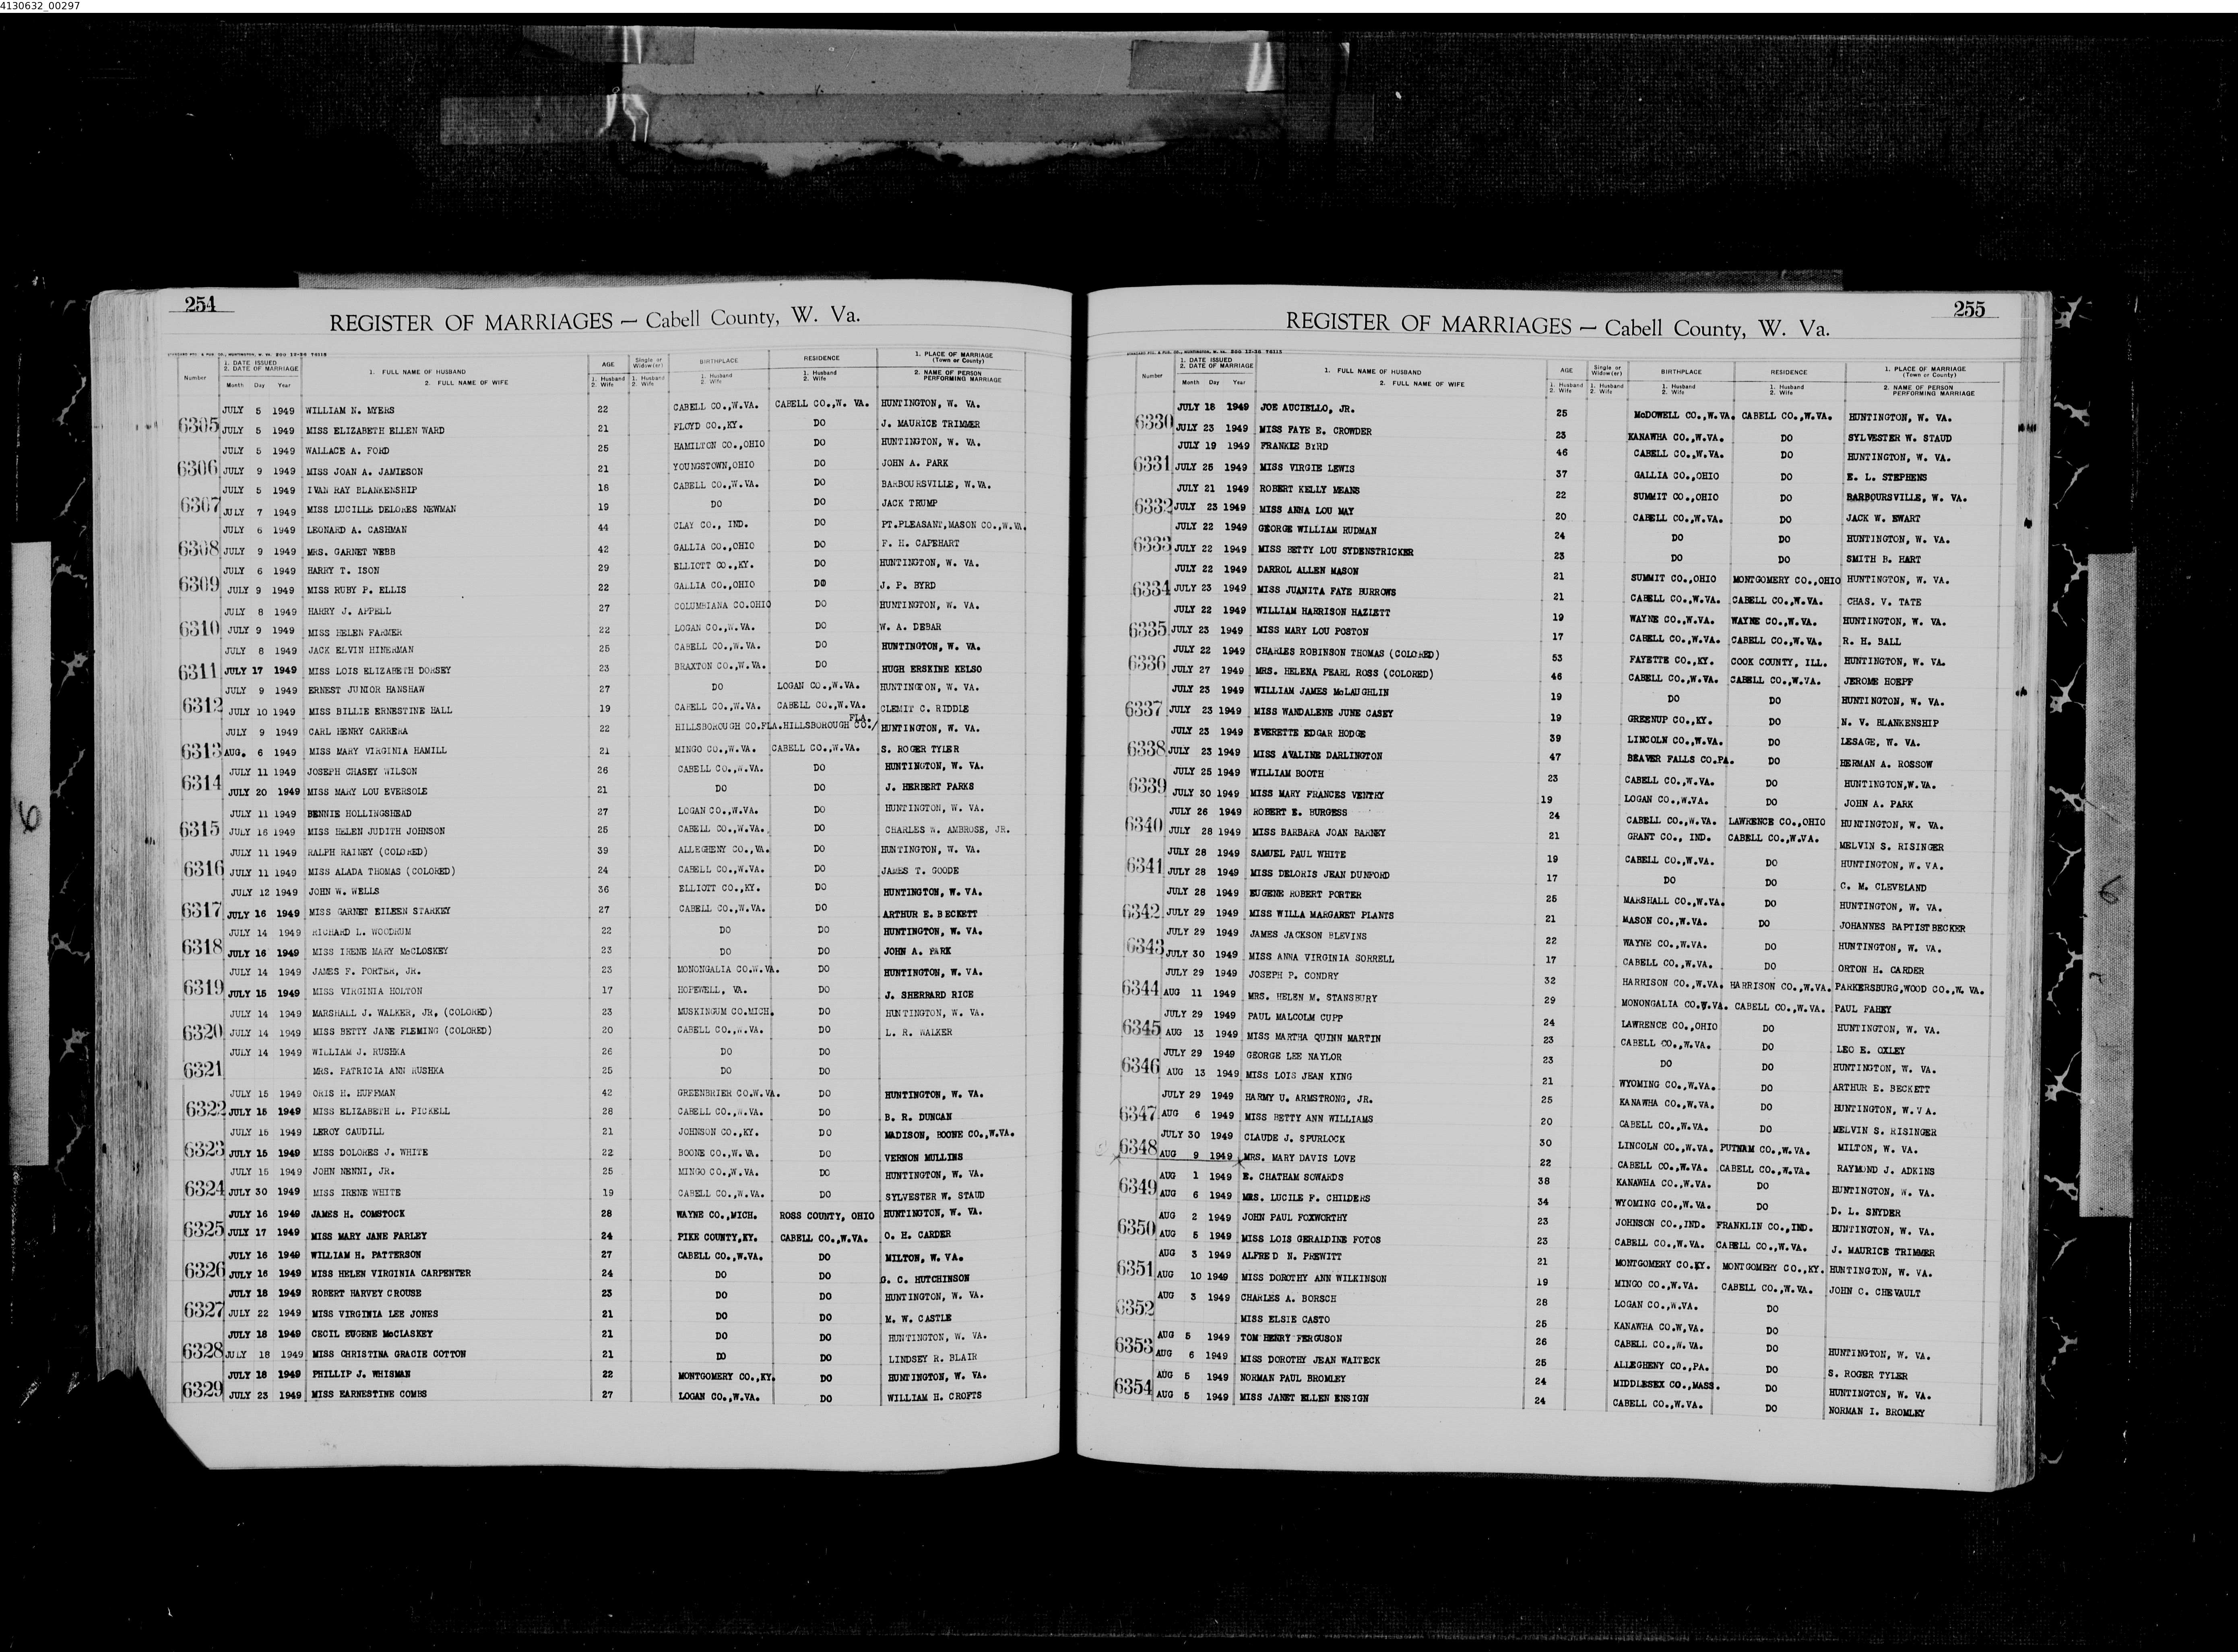 4130632_00297
254
REGISTER OF MARRIAGES — Cabell County, W. Va.
Number 1. DATE ISSUED 2. DATE OF MARRIAGE Month Day Year 1. FULL NAME OF HUSBAND 2. FULL NAME OF WIFE AGE 1. Husband 2. Wife Single or Widow(er) 1. Husband 2. Wife BIRTHPLACE 1. Husband 2. Wife RESIDENCE 1. Husband 2. Wife 1. PLACE OF MARRIAGE (Town or County) 2. NAME OF PERSON PERFORMING MARRIAGE
JULY 5 1949 WILLIAM N. MYERS 22 CABELL CO.,W.VA. CABELL CO.,W. VA. HUNTINGTON, W. VA.
6305 JULY 5 1949 MISS ELIZABETH ELLEN WARD 21 FLOYD CO.,KY. DO J. MAURICE TRIMMER
JULY 5 1949 WALLACE A. FORD 25 HAMILTON CO.,OHIO DO HUNTINGTON, W. VA.
6306 JULY 9 1949 MISS JOAN A. JAMIESON 21 YOUNGSTOWN,OHIO DO JOHN A. PARK
JULY 5 1949 IVAN RAY BLANKENSHIP 18 CABELL CO.,W.VA. DO BARBOURSVILLE, W.VA.
6307 JULY 7 1949 MISS LUCILLE DELORES NEWMAN 19 DO DO JACK TRUMP
JULY 6 1949 LEONARD A. CASHMAN 44 CLAY CO., IND. DO PT.PLEASANT,MASON CO.,W.VA.
6308 JULY 9 1949 MRS. GARNET WEBB 42 GALLIA CO.,OHIO DO F. H. CAPEHART
JULY 6 1949 HARRY T. ISON 29 ELLIOTT CO.,KY. DO HUNTINGTON, W. VA.
6309 JULY 9 1949 MISS RUBY P. ELLIS 22 GALLIA CO.,OHIO DO J. P. BYRD
JULY 8 1949 HARRY J. APPELL 27 COLUMBIANA CO.OHIO DO HUNTINGTON, W. VA.
6310 JULY 9 1949 MISS HELEN FARMER 22 LOGAN CO.,W.VA. DO W. A. DEBAR
JULY 8 1949 JACK ELVIN HINERMAN 25 CABELL CO.,W.VA. DO HUNTINGTON, W. VA.
6311 JULY 17 1949 MISS LOIS ELIZABETH DORSEY 23 BRAXTON CO.,W.VA. DO HUGH ERSKINE KELSO
JULY 9 1949 ERNEST JUNIOR HANSHAW 27 DO LOGAN CO.,W.VA. HUNTINGTON, W. VA.
6312 JULY 10 1949 MISS BILLIE ERNESTINE HALL 19 CABELL CO.,W.VA. CABELL CO.,W.VA. CLEMIT C. RIDDLE
JULY 9 1949 CARL HENRY CARRERA 22 HILLSBOROUGH CO.FLA.HILLSBOROUGH CO./ FLA. HUNTINGTON, W. VA.
6313 AUG. 6 1949 MISS MARY VIRGINIA HAMILL 21 MINGO CO.,W.VA. CABELL CO.,W.VA. S. ROGER TYLER
JULY 11 1949 JOSEPH CHASEY WILSON 26 CABELL CO.,W.VA. DO HUNTINGTON, W. VA.
6314 JULY 20 1949 MISS MARY LOU EVERSOLE 21 DO DO J. HERBERT PARKS
JULY 11 1949 BENNIE HOLLINGSHEAD 27 LOGAN CO.,W.VA. DO HUNTINGTON, W. VA.
6315 JULY 16 1949 MISS HELEN JUDITH JOHNSON 25 CABELL CO.,W.VA. DO CHARLES W. AMBROSE, JR.
JULY 11 1949 RALPH RAINEY (COLORED) 39 ALLEGHENY CO.,VA. DO HUNTINGTON, W. VA.
6316 JULY 11 1949 MISS ALADA THOMAS (COLORED) 24 CABELL CO.,W.VA. DO JAMES T. GOODE
JULY 12 1949 JOHN W. WELLS 36 ELLIOTT CO.,KY. DO HUNTINGTON, W. VA.
6317 JULY 16 1949 MISS GARNET EILEEN STARKEY 27 CABELL CO.,W.VA. DO ARTHUR E. BECKETT
JULY 14 1949 RICHARD L. WOODRUM 22 DO DO HUNTINGTON, W. VA.
6318 JULY 16 1949 MISS IRENE MARY McCLOSKEY 23 DO DO JOHN A. PARK
JULY 14 1949 JAMES F. PORTER, JR. 23 MONONGALIA CO.W.VA. DO HUNTINGTON, W. VA.
6319 JULY 15 1949 MISS VIRGINIA HOLTON 17 HOPEWELL, VA. DO J. SHERRARD RICE
JULY 14 1949 MARSHALL J. WALKER, JR, (COLORED) 23 MUSKINGUM CO.MICH. DO HUNTINGTON, W. VA.
6320 JULY 14 1949 MISS BETTY JANE FLEMING (COLORED) 20 CABELL CO.,W.VA. DO L. R. WALKER
JULY 14 1949 WILLIAM J. RUSHKA 26 DO DO
6321 MRS. PATRICIA ANN RUSHKA 25 DO DO
JULY 15 1949 ORIS H. HUFFMAN 42 GREENBRIER CO.W.VA. DO HUNTINGTON, W. VA.
6322 JULY 15 1949 MISS ELIZABETH L. PICKELL 28 CABELL CO.,W.VA. DO B. R. DUNCAN
JULY 15 1949 LEROY CAUDILL 21 JOHNSON CO.,KY. DO MADISON, BOONE CO.,W.VA.
6323 JULY 15 1949 MISS DOLORES J. WHITE 22 BOONE CO.,W.VA. DO VERNON MULLINS
JULY 15 1949 JOHN NENNI, JR. 25 MINGO CO.,W.VA. DO HUNTINGTON, W. VA.
6324 JULY 30 1949 MISS IRENE WHITE 19 CABELL CO.,W.VA. DO SYLVESTER W. STAUD
JULY 16 1949 JAMES H. COMSTOCK 28 WAYNE CO.,MICH. ROSS COUNTY, OHIO HUNTINGTON, W. VA.
6325 JULY 17 1949 MISS MARY JANE FARLEY 24 PIKE COUNTY,KY. CABELL CO.,W.VA. O. H. CARDER
JULY 16 1949 WILLIAM H. PATTERSON 27 CABELL CO.,W.VA. DO MILTON, W. VA.
6326 JULY 16 1949 MISS HELEN VIRGINIA CARPENTER 24 DO DO G. C. HUTCHINSON
JULY 18 1949 ROBERT HARVEY CROUSE 23 DO DO HUNTINGTON, W. VA.
6327 JULY 22 1949 MISS VIRGINIA LEE JONES 21 DO DO M. W. CASTLE
JULY 18 1949 CECIL EUGENE McCLASKEY 21 DO DO HUNTINGTON, W. VA.
6328 JULY 18 1949 MISS CHRISTINA GRACIE COTTON 21 DO DO LINDSEY R. BLAIR
JULY 18 1949 PHILLIP J. WHISMAN 22 MONTGOMERY CO.,KY. DO HUNTINGTON, W. VA.
6329 JULY 23 1949 MISS EARNESTINE COMBS 27 LOGAN CO.,W.VA. DO WILLIAM H. CROFTS
255
REGISTER OF MARRIAGES — Cabell County, W. Va.
Number 1. DATE ISSUED 2. DATE OF MARRIAGE Month Day Year 1. FULL NAME OF HUSBAND 2. FULL NAME OF WIFE AGE 1. Husband 2. Wife Single or Widow(er) 1. Husband 2. Wife BIRTHPLACE 1. Husband 2. Wife RESIDENCE 1. Husband 2. Wife 1. PLACE OF MARRIAGE (Town or County) 2. NAME OF PERSON PERFORMING MARRIAGE
JULY 18 1949 JOE AUCIELLO, JR. 25 McDOWELL CO.,W.VA. CABELL CO.,W.VA. HUNTINGTON, W. VA.
6330 JULY 23 1949 MISS FAYE E. CROWDER 23 KANAWHA CO.,W.VA. DO SYLVESTER W. STAUD
JULY 19 1949 FRANKIE BYRD 46 CABELL CO.,W.VA. DO HUNTINGTON, W. VA.
6331 JULY 25 1949 MISS VIRGIE LEWIS 37 GALLIA CO.,OHIO DO E. L. STEPHENS
JULY 21 1949 ROBERT KELLY MEANS 22 SUMMIT CO.,OHIO DO BARBOURSVILLE, W. VA.
6332 JULY 23 1949 MISS ANNA LOU MAY 20 CABELL CO.,W.VA. DO JACK W. EWART
JULY 22 1949 GEORGE WILLIAM RUDMAN 24 DO DO HUNTINGTON, W. VA.
6333 JULY 22 1949 MISS BETTY LOU SYDENSTRICKER 23 DO DO SMITH B. HART
JULY 22 1949 DARROL ALLEN MASON 21 SUMMIT CO.,OHIO MONTGOMERY CO.,OHIO HUNTINGTON, W. VA.
6334 JULY 23 1949 MISS JUANITA FAYE BURROWS 21 CABELL CO.,W.VA. CABELL CO.,W.VA. CHAS. V. TATE
JULY 22 1949 WILLIAM HARRISON HAZLETT 19 WAYNE CO.,W.VA. WAYNE CO.,W.VA. HUNTINGTON, W. VA.
6335 JULY 23 1949 MISS MARY LOU POSTON 17 CABELL CO.,W.VA. CABELL CO.,W.VA. R. H. BALL
JULY 22 1949 CHARLES ROBINSON THOMAS (COLORED) 53 FAYETTE CO.,KY. COOK COUNTY, ILL. HUNTINGTON, W. VA.
6336 JULY 27 1949 MRS. HELENA PEARL ROSS (COLORED) 46 CABELL CO.,W.VA. CABELL CO.,W.VA. JEROME HOEPF
JULY 23 1949 WILLIAM JAMES McLAUGHLIN 19 DO DO HUNTINGTON, W. VA.
6337 JULY 23 1949 MISS WANDALENE JUNE CASEY 19 GREENUP CO.,KY. DO N. V. BLANKENSHIP
JULY 23 1949 EVERETTE EDGAR HODGE 39 LINCOLN CO.,W.VA. DO LESAGE, W. VA.
6338 JULY 23 1949 MISS AVALINE DARLINGTON 47 BEAVER FALLS CO.PA. DO HERMAN A. ROSSOW
JULY 25 1949 WILLIAM BOOTH 23 CABELL CO.,W.VA. DO HUNTINGTON,W.VA.
6339 JULY 30 1949 MISS MARY FRANCES VENTRY 19 LOGAN CO.,W.VA. DO JOHN A. PARK
JULY 26 1949 ROBERT E. BURGESS 24 CABELL CO.,W.VA. LAWRENCE CO.,OHIO HUNTINGTON, W. VA.
6340 JULY 28 1949 MISS BARBARA JOAN BARNEY 21 GRANT CO., IND. CABELL CO.,W.VA. MELVIN S. RISINGER
JULY 28 1949 SAMUEL PAUL WHITE 19 CABELL CO.,W.VA. DO HUNTINGTON, W. VA.
6341 JULY 28 1949 MISS DELORIS JEAN DUNFORD 17 DO DO C. M. CLEVELAND
JULY 28 1949 EUGENE ROBERT PORTER 25 MARSHALL CO.,W.VA. DO HUNTINGTON, W. VA.
6342 JULY 29 1949 MISS WILLA MARGARET PLANTS 21 MASON CO.,W.VA. DO JOHANNES BAPTIST BECKER
JULY 29 1949 JAMES JACKSON BLEVINS 22 WAYNE CO.,W.VA. DO HUNTINGTON, W. VA.
6343 JULY 30 1949 MISS ANNA VIRGINIA SORRELL 17 CABELL CO.,W.VA. DO ORTON H. CARDER
JULY 29 1949 JOSEPH P. CONDRY 32 HARRISON CO.,W.VA. HARRISON CO.,W.VA. PARKERSBURG,WOOD CO.,W. VA.
6344 AUG 11 1949 MRS. HELEN M. STANSBURY 29 MONONGALIA CO.W.VA. CABELL CO.,W.VA. PAUL FAHEY
JULY 29 1949 PAUL MALCOLM CUPP 24 LAWRENCE CO.,OHIO DO HUNTINGTON, W. VA.
6345 AUG 13 1949 MISS MARTHA QUINN MARTIN 23 CABELL CO.,W.VA. DO LEO E. OXLEY
JULY 29 1949 GEORGE LEE NAYLOR 23 DO DO HUNTINGTON, W. VA.
6346 AUG 13 1949 MISS LOIS JEAN KING 21 WYOMING CO.,W.VA. DO ARTHUR E. BECKETT
JULY 29 1949 HARMY U. ARMSTRONG, JR. 25 KANAWHA CO.,W.VA. DO HUNTINGTON, W.VA.
6347 AUG 6 1949 MISS BETTY ANN WILLIAMS 20 CABELL CO.,W.VA. DO MELVIN S. RISINGER
JULY 30 1949 CLAUDE J. SPURLOCK 30 LINCOLN CO.,W.VA. PUTNAM CO.,W.VA. MILTON, W. VA.
6348 AUG 9 1949 MRS. MARY DAVIS LOVE 22 CABELL CO.,W.VA. CABELL CO.,W.VA. RAYMOND J. ADKINS
AUG 1 1949 E. CHATHAM SOWARDS 38 KANAWHA CO.,W.VA. DO HUNTINGTON, W. VA.
6349 AUG 6 1949 MRS. LUCILE F. CHILDERS 34 WYOMING CO.,W.VA. DO D. L. SNYDER
AUG 2 1949 JOHN PAUL FOXWORTHY 23 JOHNSON CO.,IND. FRANKLIN CO.,IND. HUNTINGTON, W. VA.
6350 AUG 5 1949 MISS LOIS GERALDINE FOTOS 23 CABELL CO.,W.VA. CABELL CO.,W.VA. J. MAURICE TRIMMER
AUG 3 1949 ALFRED N. PREWITT 21 MONTGOMERY CO.KY. MONTGOMERY CO.,KY. HUNTINGTON, W. VA.
6351 AUG 10 1949 MISS DOROTHY ANN WILKINSON 19 MINGO CO.,W.VA. CABELL CO.,W.VA. JOHN C. CHEVAULT
AUG 3 1949 CHARLES A. BORSCH 28 LOGAN CO.,W.VA. DO
6352 MISS ELSIE CASTO 25 KANAWHA CO.W,VA. DO
6353 AUG 5 1949 TOM HENRY FERGUSON 26 CABELL CO.,W.VA. DO HUNTINGTON, W. VA.
AUG 6 1949 MISS DOROTHY JEAN WAITECK 25 ALLEGHENY CO.,PA. DO S. ROGER TYLER
6354 AUG 5 1949 NORMAN PAUL BROMLEY 24 MIDDLESEX CO.,MASS. DO HUNTINGTON, W. VA.
AUG 5 1949 MISS JANET ELLEN ENSIGN 24 CABELL CO.,W.VA. DO NORMAN I. BROMLEY